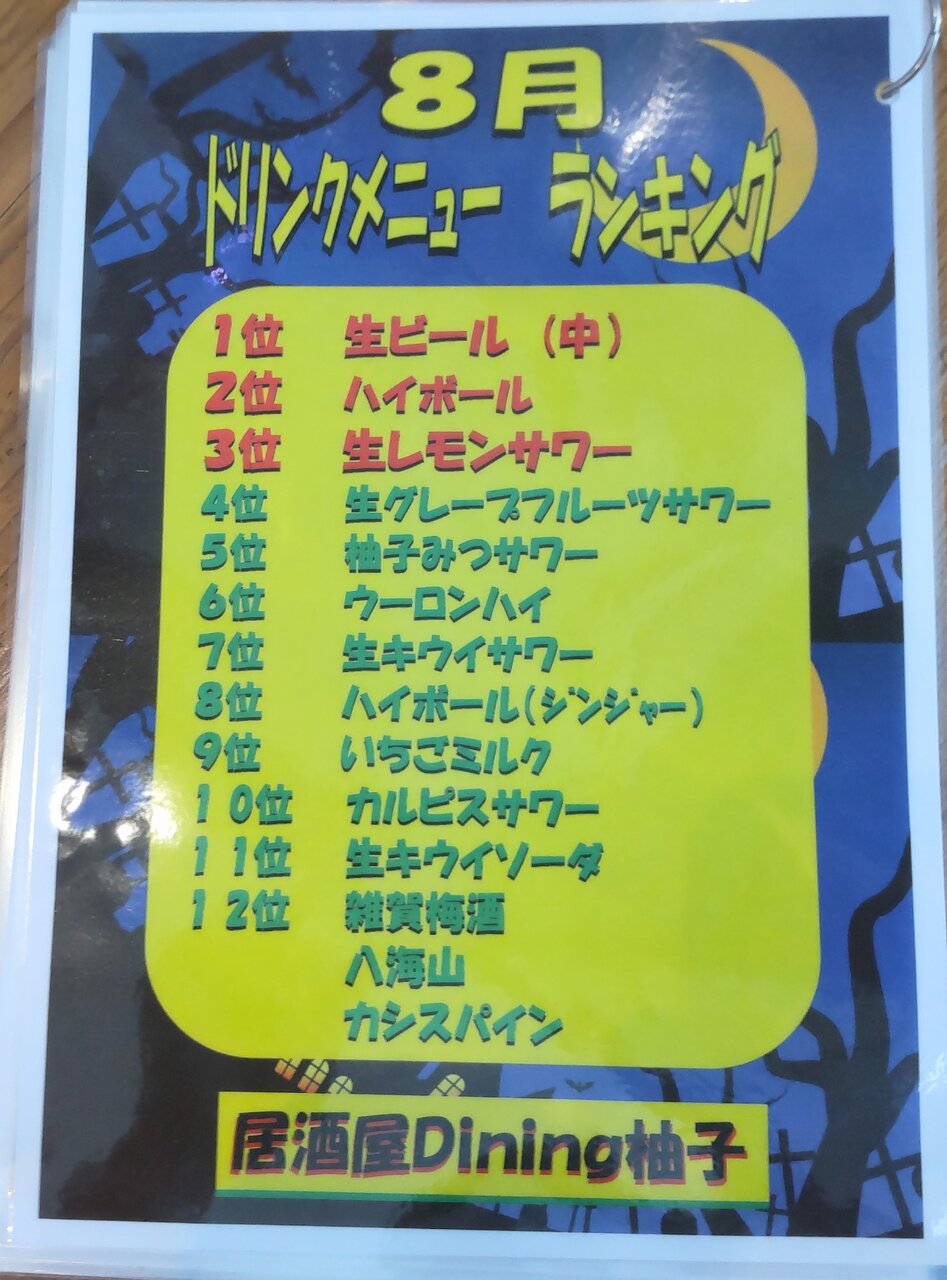 8月
ドリンクメニュー ランキング
1位 生ビール (中)
2位 ハイボール
3位 生レモンサワー
4位 生グレープフルーツサワー
5位 柚子みつサワー
6位 ウーロンハイ
7位 生キウイサワー
8位 ハイボール(ジンジャー)
9位 いちごミルク
10位 カルピスサワー
11位 生キウイソーダ
12位 雑賀梅酒
八海山
カシスパイン
居酒屋Dining柚子